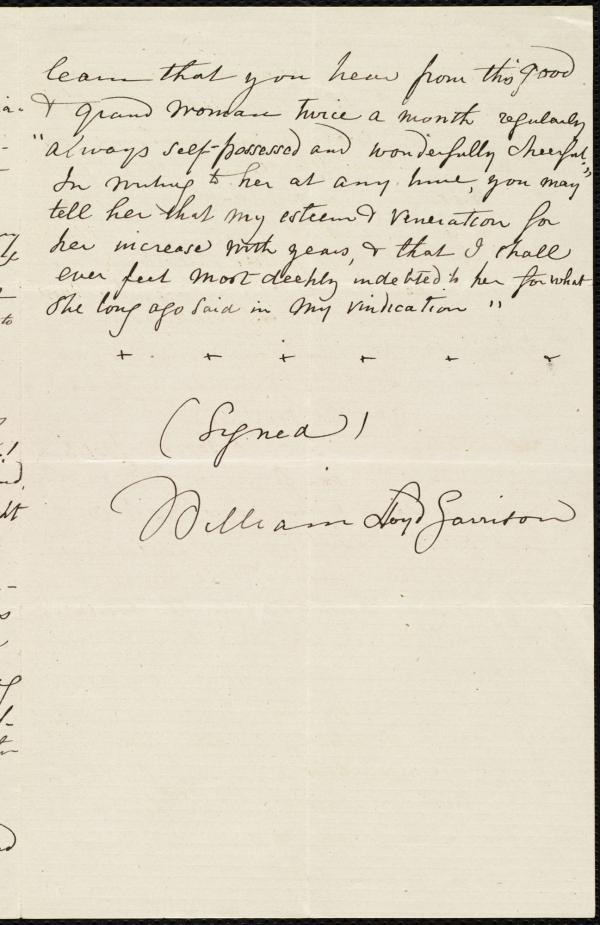 learn that you hear from this good
& grand woman twice a month regularly
"always self-possessed and wonderfully cheerful."
In writing to her at any time, you may
tell her that my esteem & veneration for
her increase with years, & that I shall
ever feel most deeply indebted to her for what
she long ago said in my vindication"
+ + + + + +
(Signed)
William Lloyd Garrison